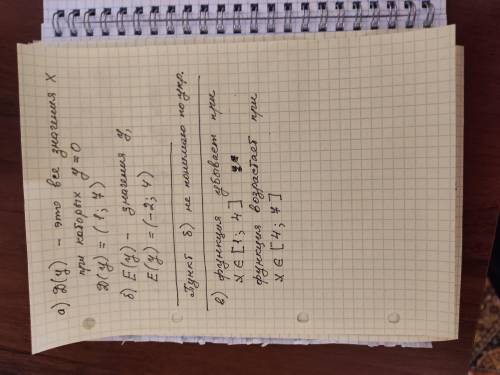 а) D(y) - это все значения x
при которых y=0
D(y) = (1; 7)
б) E(y) - значения y,
E(y) = (-2; 4)
Пункт б) не понимаю по укр.
в) функция убывает при
x ∈ [1; 4]
функция возрастает при
x ∈ [4; 7]